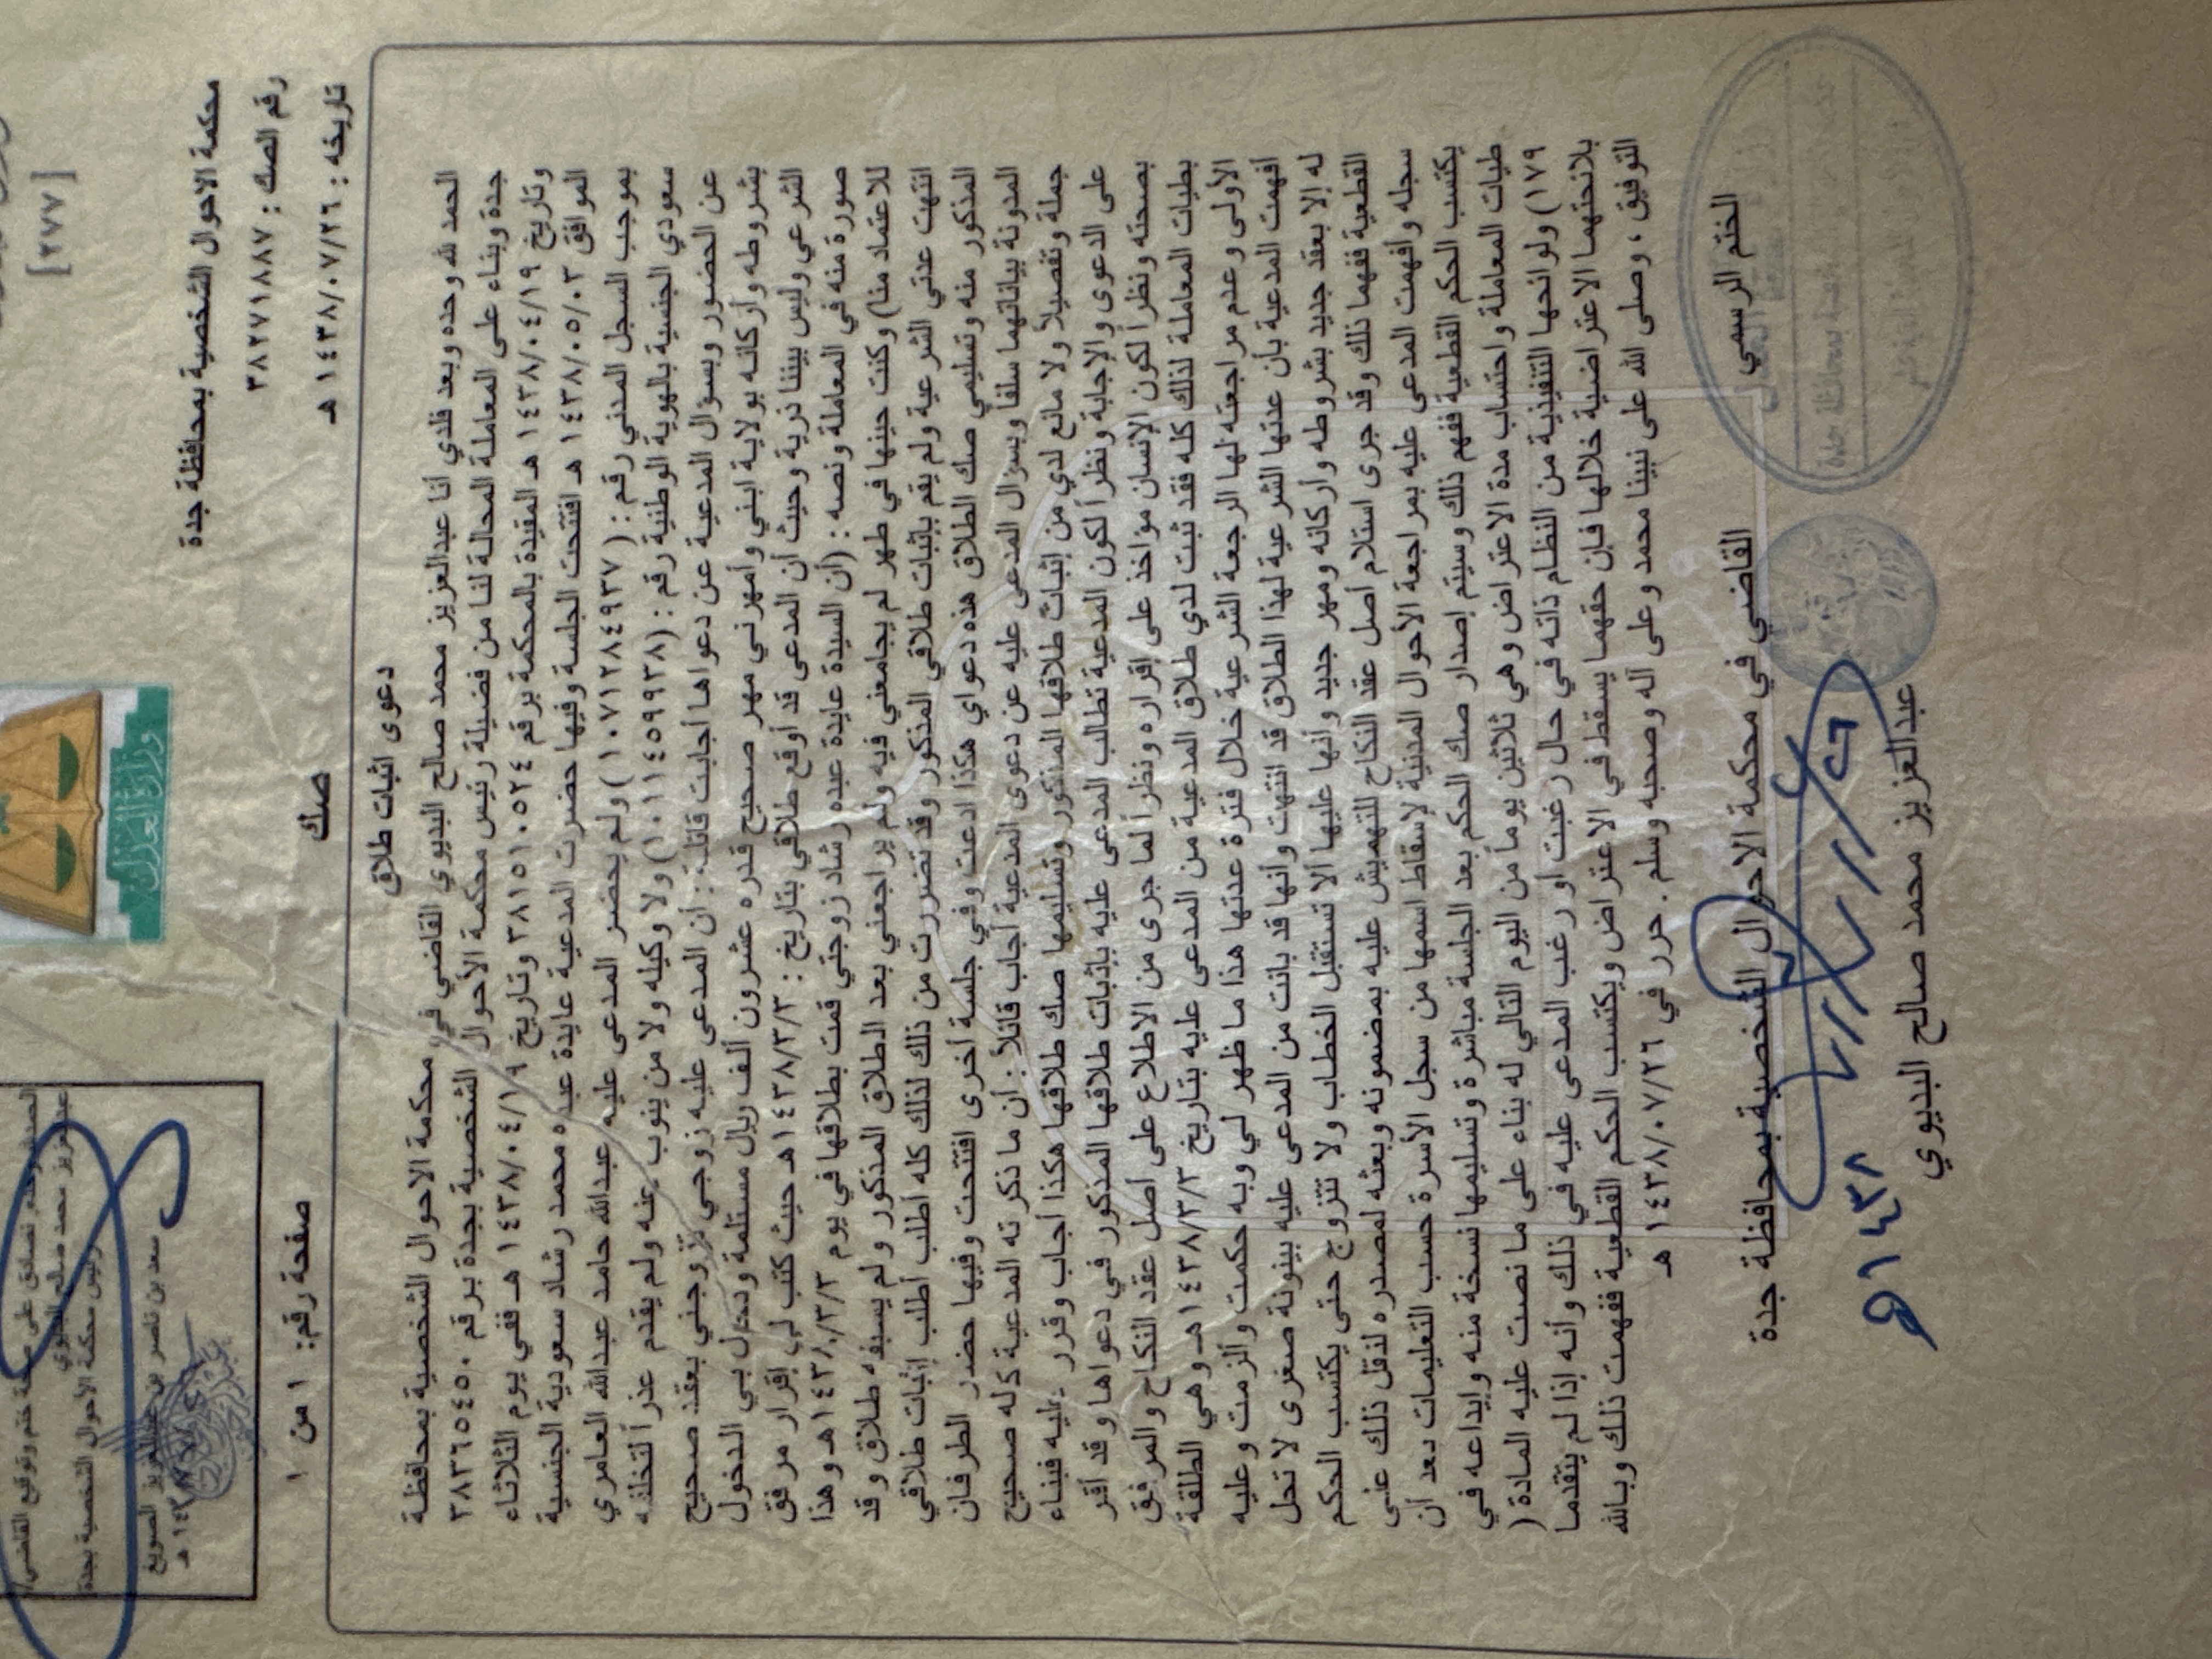 [٢٧٧]
وزارة العدل
محكمة الاحوال الشخصية بمحافظة جدة
رقم الصك : ٣٨٢٧١٨٨٧
تاريخه : ١٤٣٨/٠٧/٢٦ هـ
صك
صفحة رقم: ١ من ١
عبدالعزيز محمد صالح البديوي
رئيس محكمة الأحوال الشخصية بجدة
سعد بن ناصر بن
دعوى اثبات طلاق
الحمد لله وحده وبعد فلدي أنا عبدالعزيز محمد صالح البديوي القاضي في محكمة الاحوال الشخصية بمحافظة
جدة وبناء على المعاملة المحالة لنا من فضيلة رئيس محكمة الأحوال الشخصية بجدة برقم ٣٨٣٦٥٤٥٠
وتاريخ ١٤٣٨/٠٤/١٩ هـ المقيدة بالمحكمة برقم ٣٨١٥١٠٥٢٤ وتاريخ ١٤٣٨/٠٤/١٩ هـ ففي يوم الثلاثاء
الموافق ١٤٣٨/٠٥/٠٣ هـ افتتحت الجلسة وفيها حضرت المدعية عايدة عبده محمد رشاد سعودية الجنسية
بموجب السجل المدني رقم : (١٠٧١٢٨٤٩٣٧) ولم يحضر المدعى عليه عبدالله حامد عبدالله العامري
سعودي الجنسية بالهوية الوطنية رقم : (١٠١١٤٥٩٩٣٨) ولا وكيله ولا من ينوب عنه ولم يقدم عذراً لتخلفه
عن الحضور وبسؤال المدعية عن دعواها أجابت قائلة : أن المدعى عليه زوجي تزوجني بعقد صحيح
بشروطه وأركانه بولاية ابني وأمهرني مهر صحيح قدره عشرون ألف ريال مستلمة ودخل بي الدخول
الشرعي وليس بيننا ذرية وحيث أن المدعى قد أوقع طلاقي بتاريخ : ١٤٣٨/٣/٣هـ حيث كتب لي إقرار مرفق
صورة منه في المعاملة ونصه : (أن السيدة عايدة عبده رشاد زوجتي قمت بطلاقها في يوم ١٤٣٨/٠٣/٣هـ وهذا
للاعتماد منا) وكنت حينها في طهر لم يجامعني فيه ولم يراجعني بعد الطلاق المذكور ولم يسبقه طلاق وقد
انتهت عدتي الشرعية ولم يقم بإثبات طلاقي المذكور وقد تضررت من ذلك لذلك كله أطلب إثبات طلاقي
المذكور منه وتسليمي صك الطلاق هذه دعواي هكذا ادعت وفي جلسة أخرى افتتحت وفيها حضر الطرفان
المدونة بياناتهما سلفا وبسؤال المدعى عليه عن دعوى المدعية أجاب قائلاً : أن ما ذكرته المدعية كله صحيح
جملة وتفصيلاً ولا مانع لدي من إثبات طلاقها المذكور وتسليمها صك طلاقها هكذا أجاب وقرر عليه فبناء
على الدعوى والإجابة ونظراً لكون المدعية تطالب المدعى عليه بإثبات طلاقها المذكور في دعواها وقد أقر
بصحته ونظراً لكون الإنسان مؤاخذ على إقراره ونظراً لما جرى من الاطلاع على أصل عقد النكاح والمرفق
بطيات المعاملة لذلك كله فقد ثبت لدي طلاق المدعية من المدعى عليه بتاريخ ١٤٣٨/٣/٣هـ وهي الطلقة
الأولى وعدم مراجعته لها الرجعة الشرعية خلال فترة عدتها هذا ما ظهر لي وبه حكمت وألزمت وعليه
أفهمت المدعية بأن عدتها الشرعية لهذا الطلاق قد انتهت وأنها قد بانت من المدعى عليه بينونة صغرى لا تحل
له إلا بعقد جديد بشروطه وأركانه ومهر جديد وأنها عليها ألا تستقبل الخطاب ولا تتزوج حتى يكتسب الحكم
القطعية ففهما ذلك وقد جرى استلام أصل عقد النكاح للتهميش عليه بمضمونه وبعثه لمصدره لنقل ذلك عنى
سجله وأفهمت المدعى عليه بمراجعة الأحوال المدنية لإسقاط اسمها من سجل الأسرة حسب التعليمات بعد أن
يكتسب الحكم القطعية ففهم ذلك وسيتم إصدار صك الحكم بعد الجلسة مباشرة وتسليمها نسخة منه وإيداعه في
طيات المعاملة واحتساب مدة الاعتراض وهي ثلاثين يوماً من اليوم التالي له بناء على ما نصت عليه المادة (
١٧٩) ولوائحها التنفيذية من النظام ذاته في حال رغبت أو رغب المدعى عليه في ذلك وأنه إذا لم يتقدما
بلائحتهما الاعتراضية خلالها فإن حقهما يسقط في الاعتراض ويكتسب الحكم القطعية ففهمت ذلك وبالله
التوفيق ، وصلى الله على نبينا محمد وعلى آله وصحبه وسلم . حرر في ١٤٣٨/٠٧/٢٦ هـ
الختم الرسمي
القاضي في محكمة الاحوال الشخصية بمحافظة جدة
عبدالعزيز محمد صالح البديوي
١٤٣٨هـ